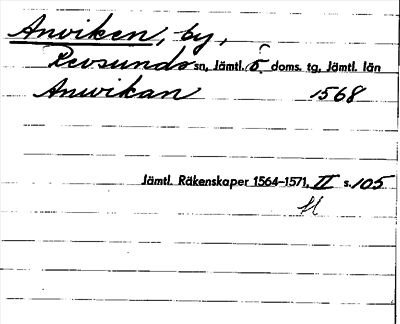 Anviken, by,
Revsunds sn, Jämtl. ö. doms. tg, Jämtl. län
Anvikan 1568
Jämtl. Räkenskaper 1564–1571, II s. 105